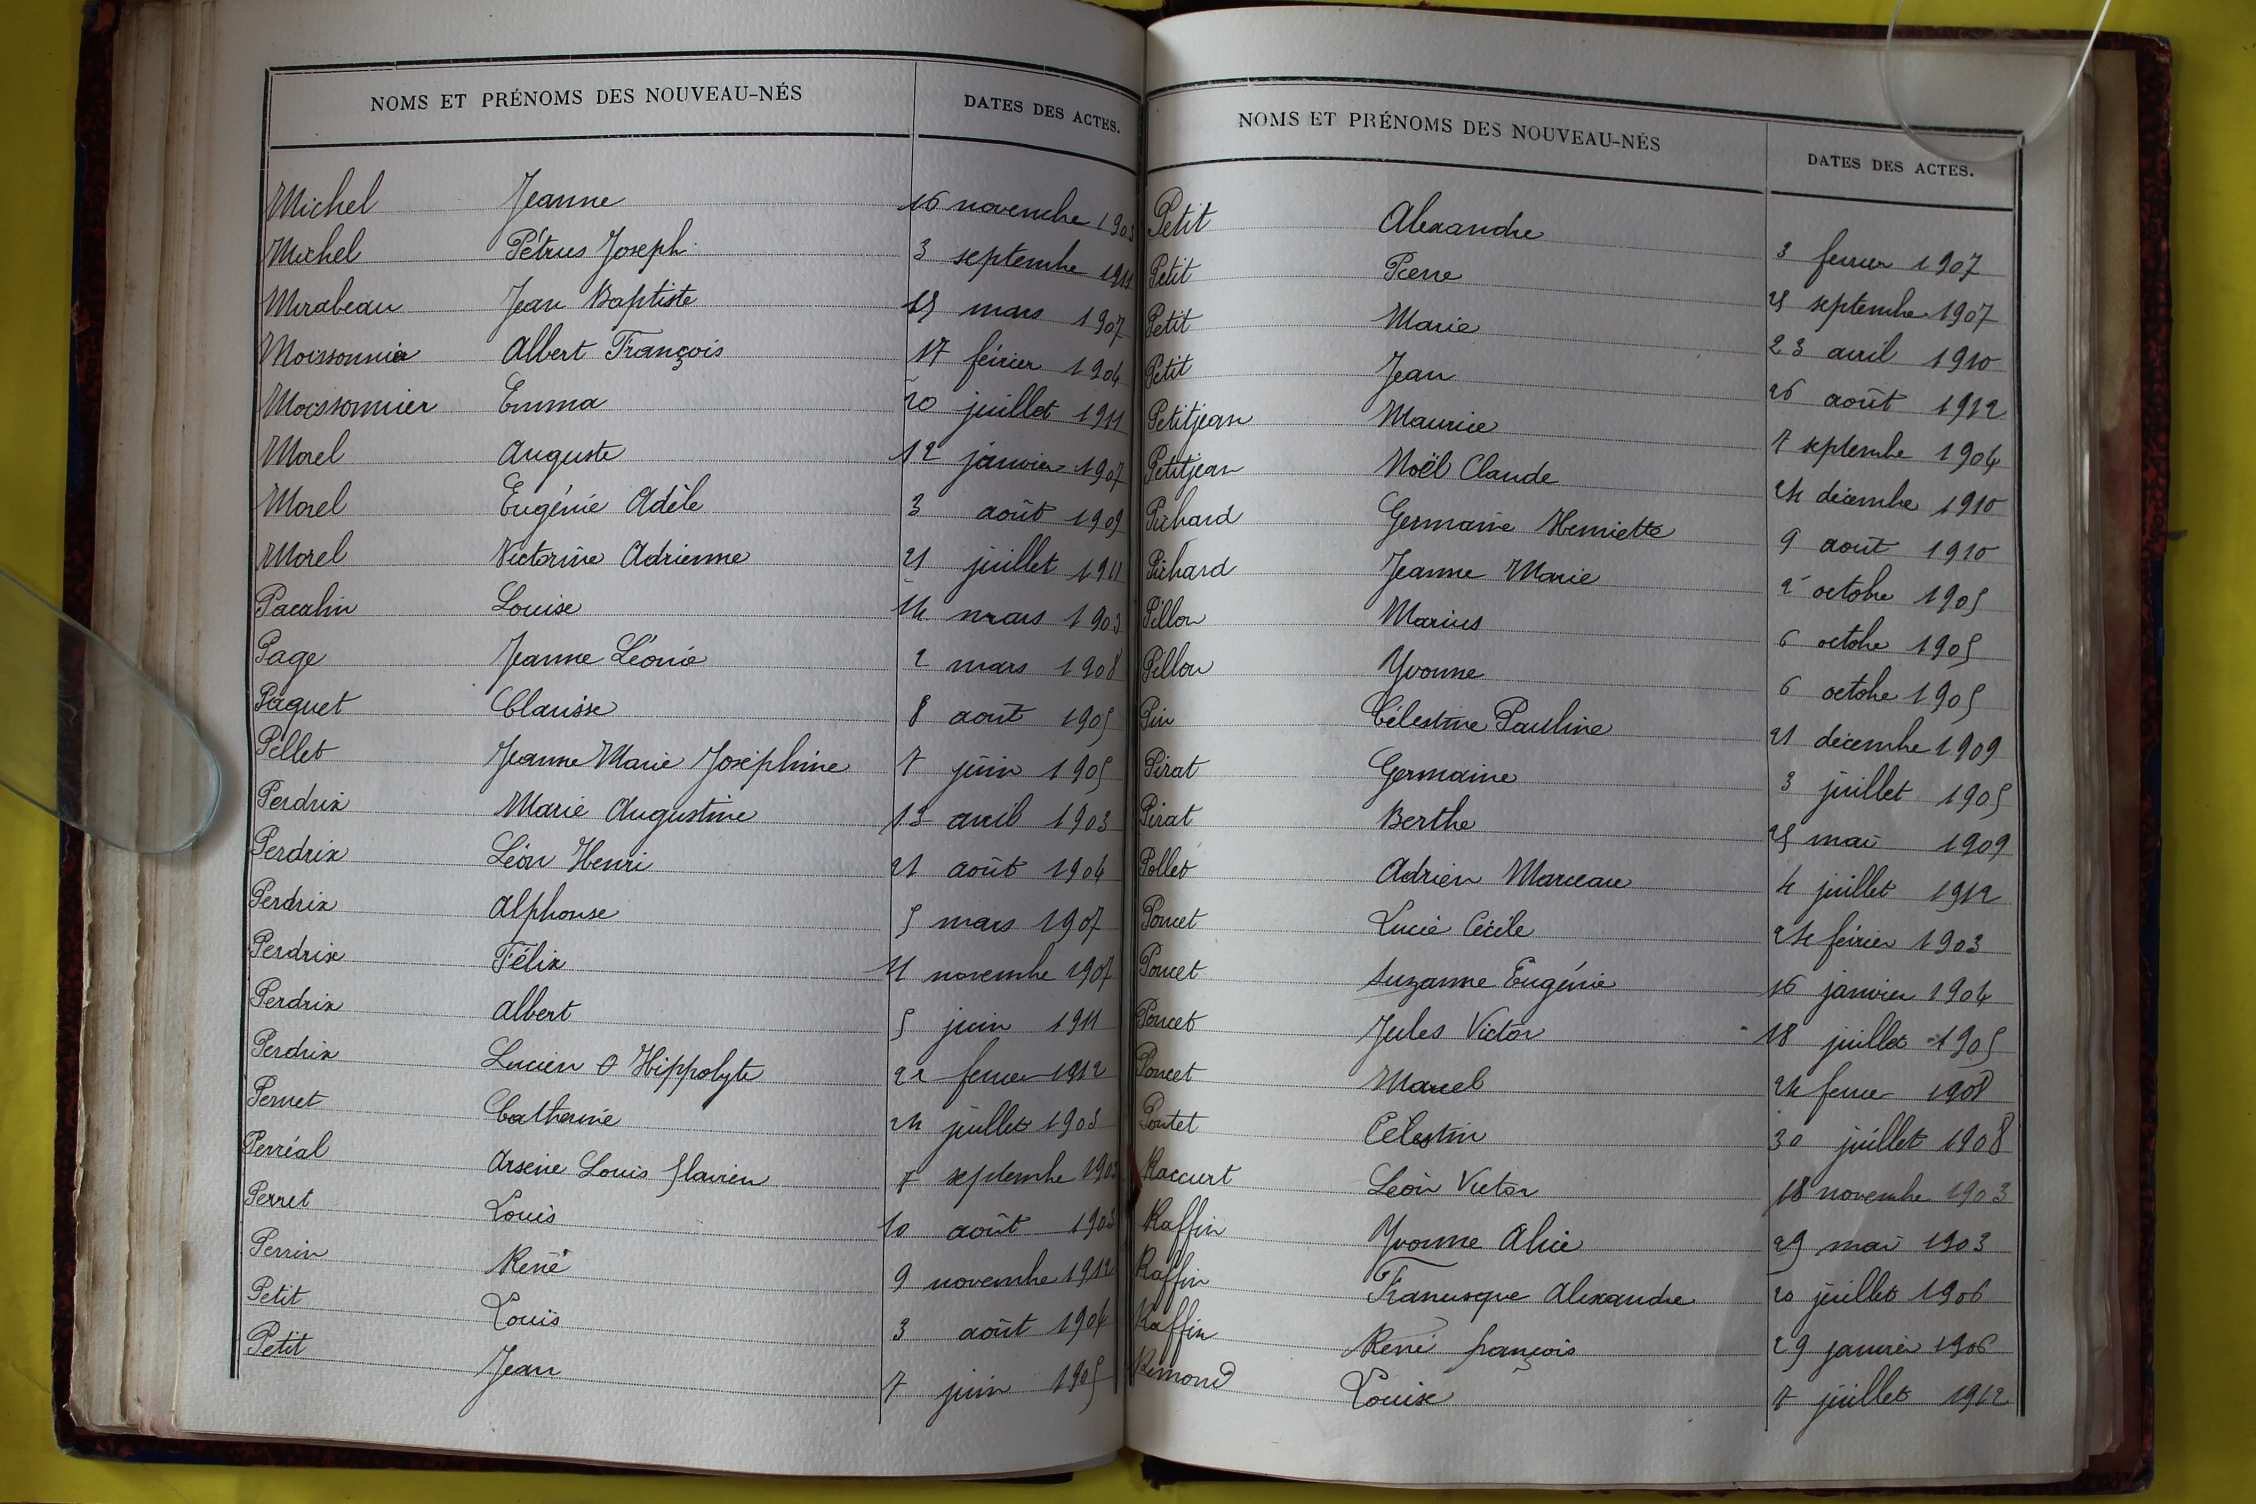 NOMS ET PRÉNOMS DES NOUVEAU-NÉS DATES DES ACTES.
Michel Jeanne 16 novembre 1903
Michel Pétrus Joseph 3 septembre 1911
Mirabeau Jean Baptiste 15 mars 1907
Moissonnier Albert François 17 février 1904
Moissonnier Emma 20 juillet 1911
Morel Auguste 12 janvier 1907
Morel Eugénie Adèle 3 août 1909
Morel Victorine Adrienne 21 juillet 1911
Pacalin Louise 14 mars 1903
Page Jeanne Léonie 2 mars 1908
Paquet Clarisse 8 août 1905
Pellet Jeanne Marie Joséphine 7 juin 1905
Perdrix Marie Augustine 13 avril 1903
Perdrix Léon Henri 21 août 1904
Perdrix Alphonse 5 mars 1907
Perdrix Félix 11 novembre 1907
Perdrix Albert 5 juin 1911
Perdrix Lucien Hippolyte 22 fevrier 1912
Pernet Catherine 24 juillet 1903
Perréal Arsene Louis Flavien 7 septembre 1903
Perret Louis 10 août 1903
Perrin René 9 novembre 1912
Petit Louis 3 août 1904
Petit Jean 7 juin 1905
NOMS ET PRÉNOMS DES NOUVEAU-NÉS DATES DES ACTES.
Petit Alexandre 3 fevrier 1907
Petit Pierre 25 septembre 1907
Petit Marie 23 avril 1910
Petit Jean 26 août 1912
Petitjean Maurice 7 septembre 1904
Petitjean Noël Claude 24 décembre 1910
Pichard Germaine Henriette 9 aout 1910
Pichard Jeanne Marie 2 octobre 1905
Pillon Marius 6 octobre 1905
Pillon Yvonne 6 octobre 1905
Pin Célestine Pauline 21 décembre 1909
Pirat Germaine 3 juillet 1905
Pirat Berthe 25 mai 1909
Pollet Adrien Marceau 4 juillet 1912
Poncet Lucie Cécile 24 février 1903
Poncet Suzanne Eugénie 16 janvier 1904
Poncet Jules Victor 18 juillet 1905
Poncet Marcel 24 fevrier 1908
Pontet Célestin 30 juillet 1908
Raccurt Léon Victor 18 novembre 1903
Raffin Yvonne Alice 29 mai 1903
Raffin Francisque Alexandre 20 juillet 1906
Raffin René françois 29 janvier 1906
Rémond Louise 7 juillet 1912